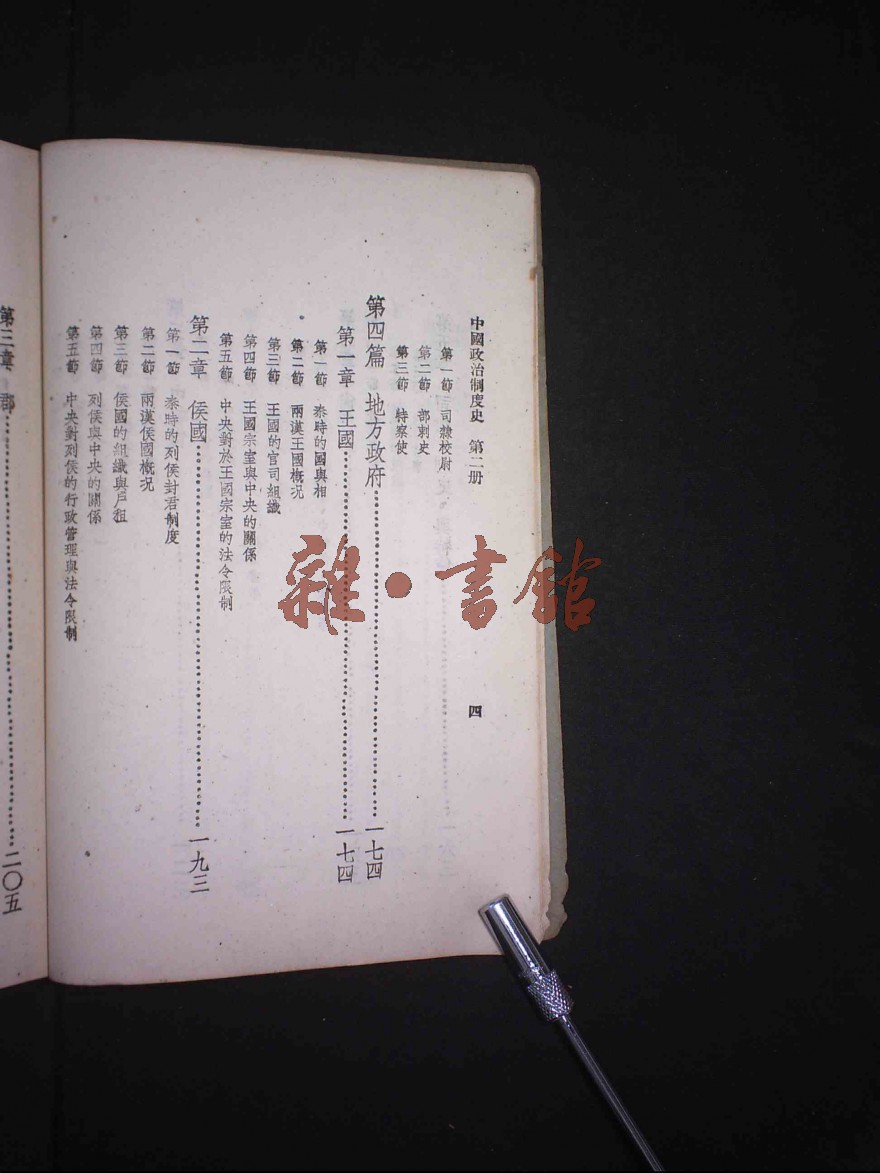 中國政治制度史　第二册
四
第一節　司隸校尉
第二節　部刺史
第三節　特察使
第四篇　地方政府……一七四
第一章　王國……一七四
第一節　秦時的國與相
第二節　兩漢王國概况
第三節　王國的官司組織
第四節　王國宗室與中央的關係
第五節　中央對於王國宗室的法令限制
第二章　侯國……一九三
第一節　秦時的列侯封君制度
第二節　兩漢侯國概况
第三節　侯國的組織與戶租
第四節　列侯與中央的關係
第五節　中央對列侯的行政管理與法令限制
第三章　郡……二〇五
雜·書館